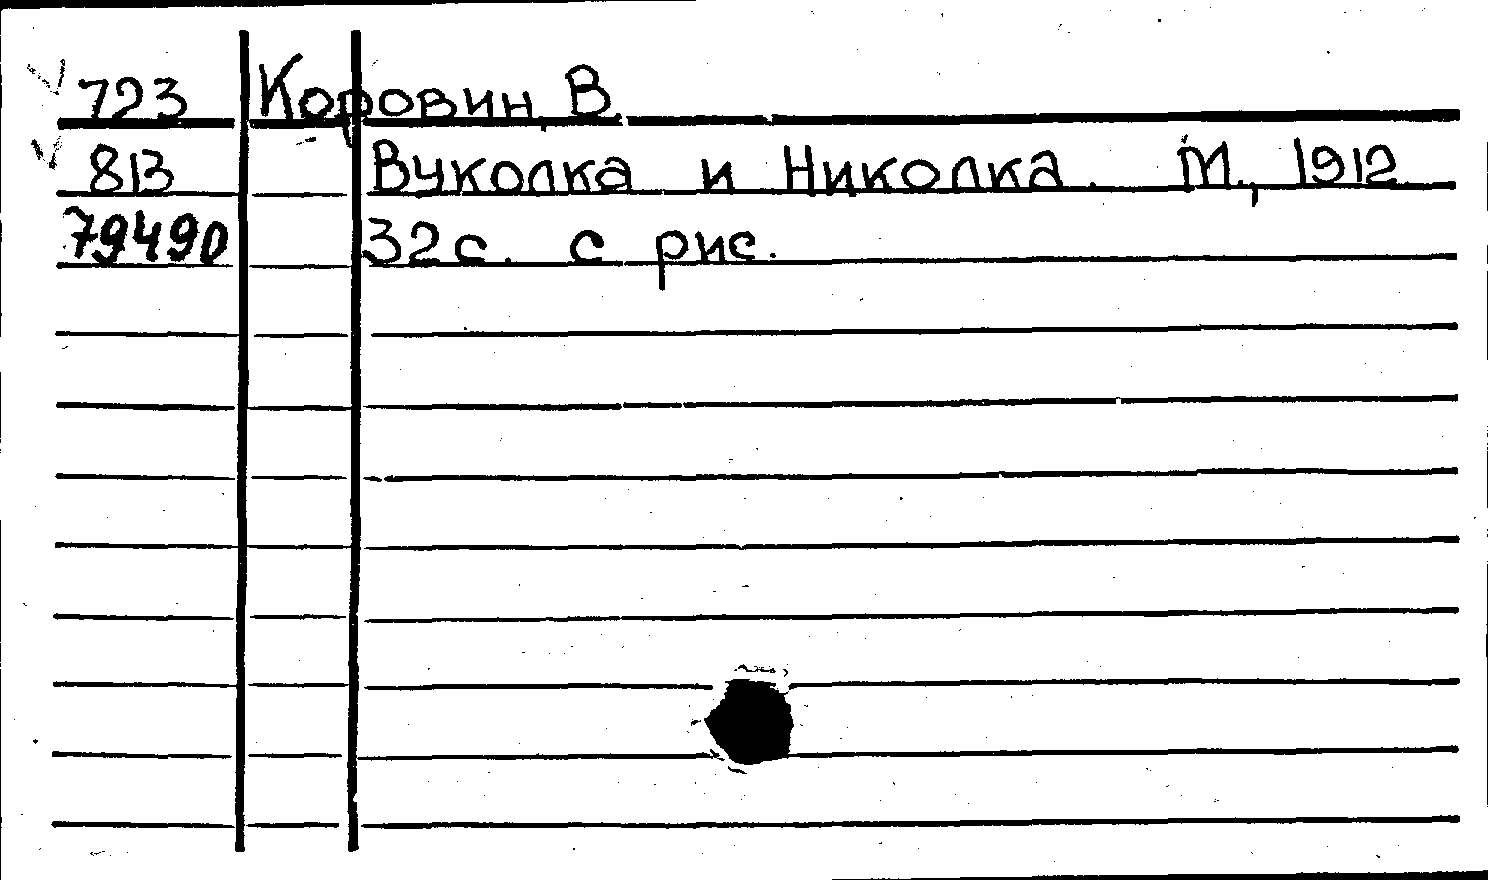 723 Коровин, В.
813 Вуколка и Николка. М., 1912
79490 32 с. с рис.